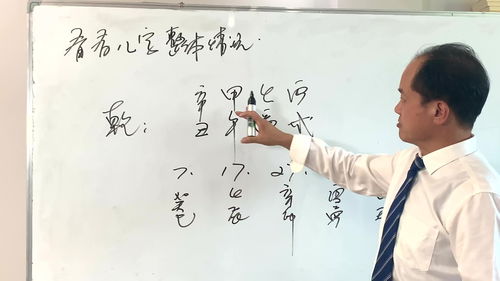 看看八字整体情况.
辛 甲 乙 丙
乾: 丑 午 戌
7. 17. 27.
癸 壬 辛 庚
巳 辰 卯 寅